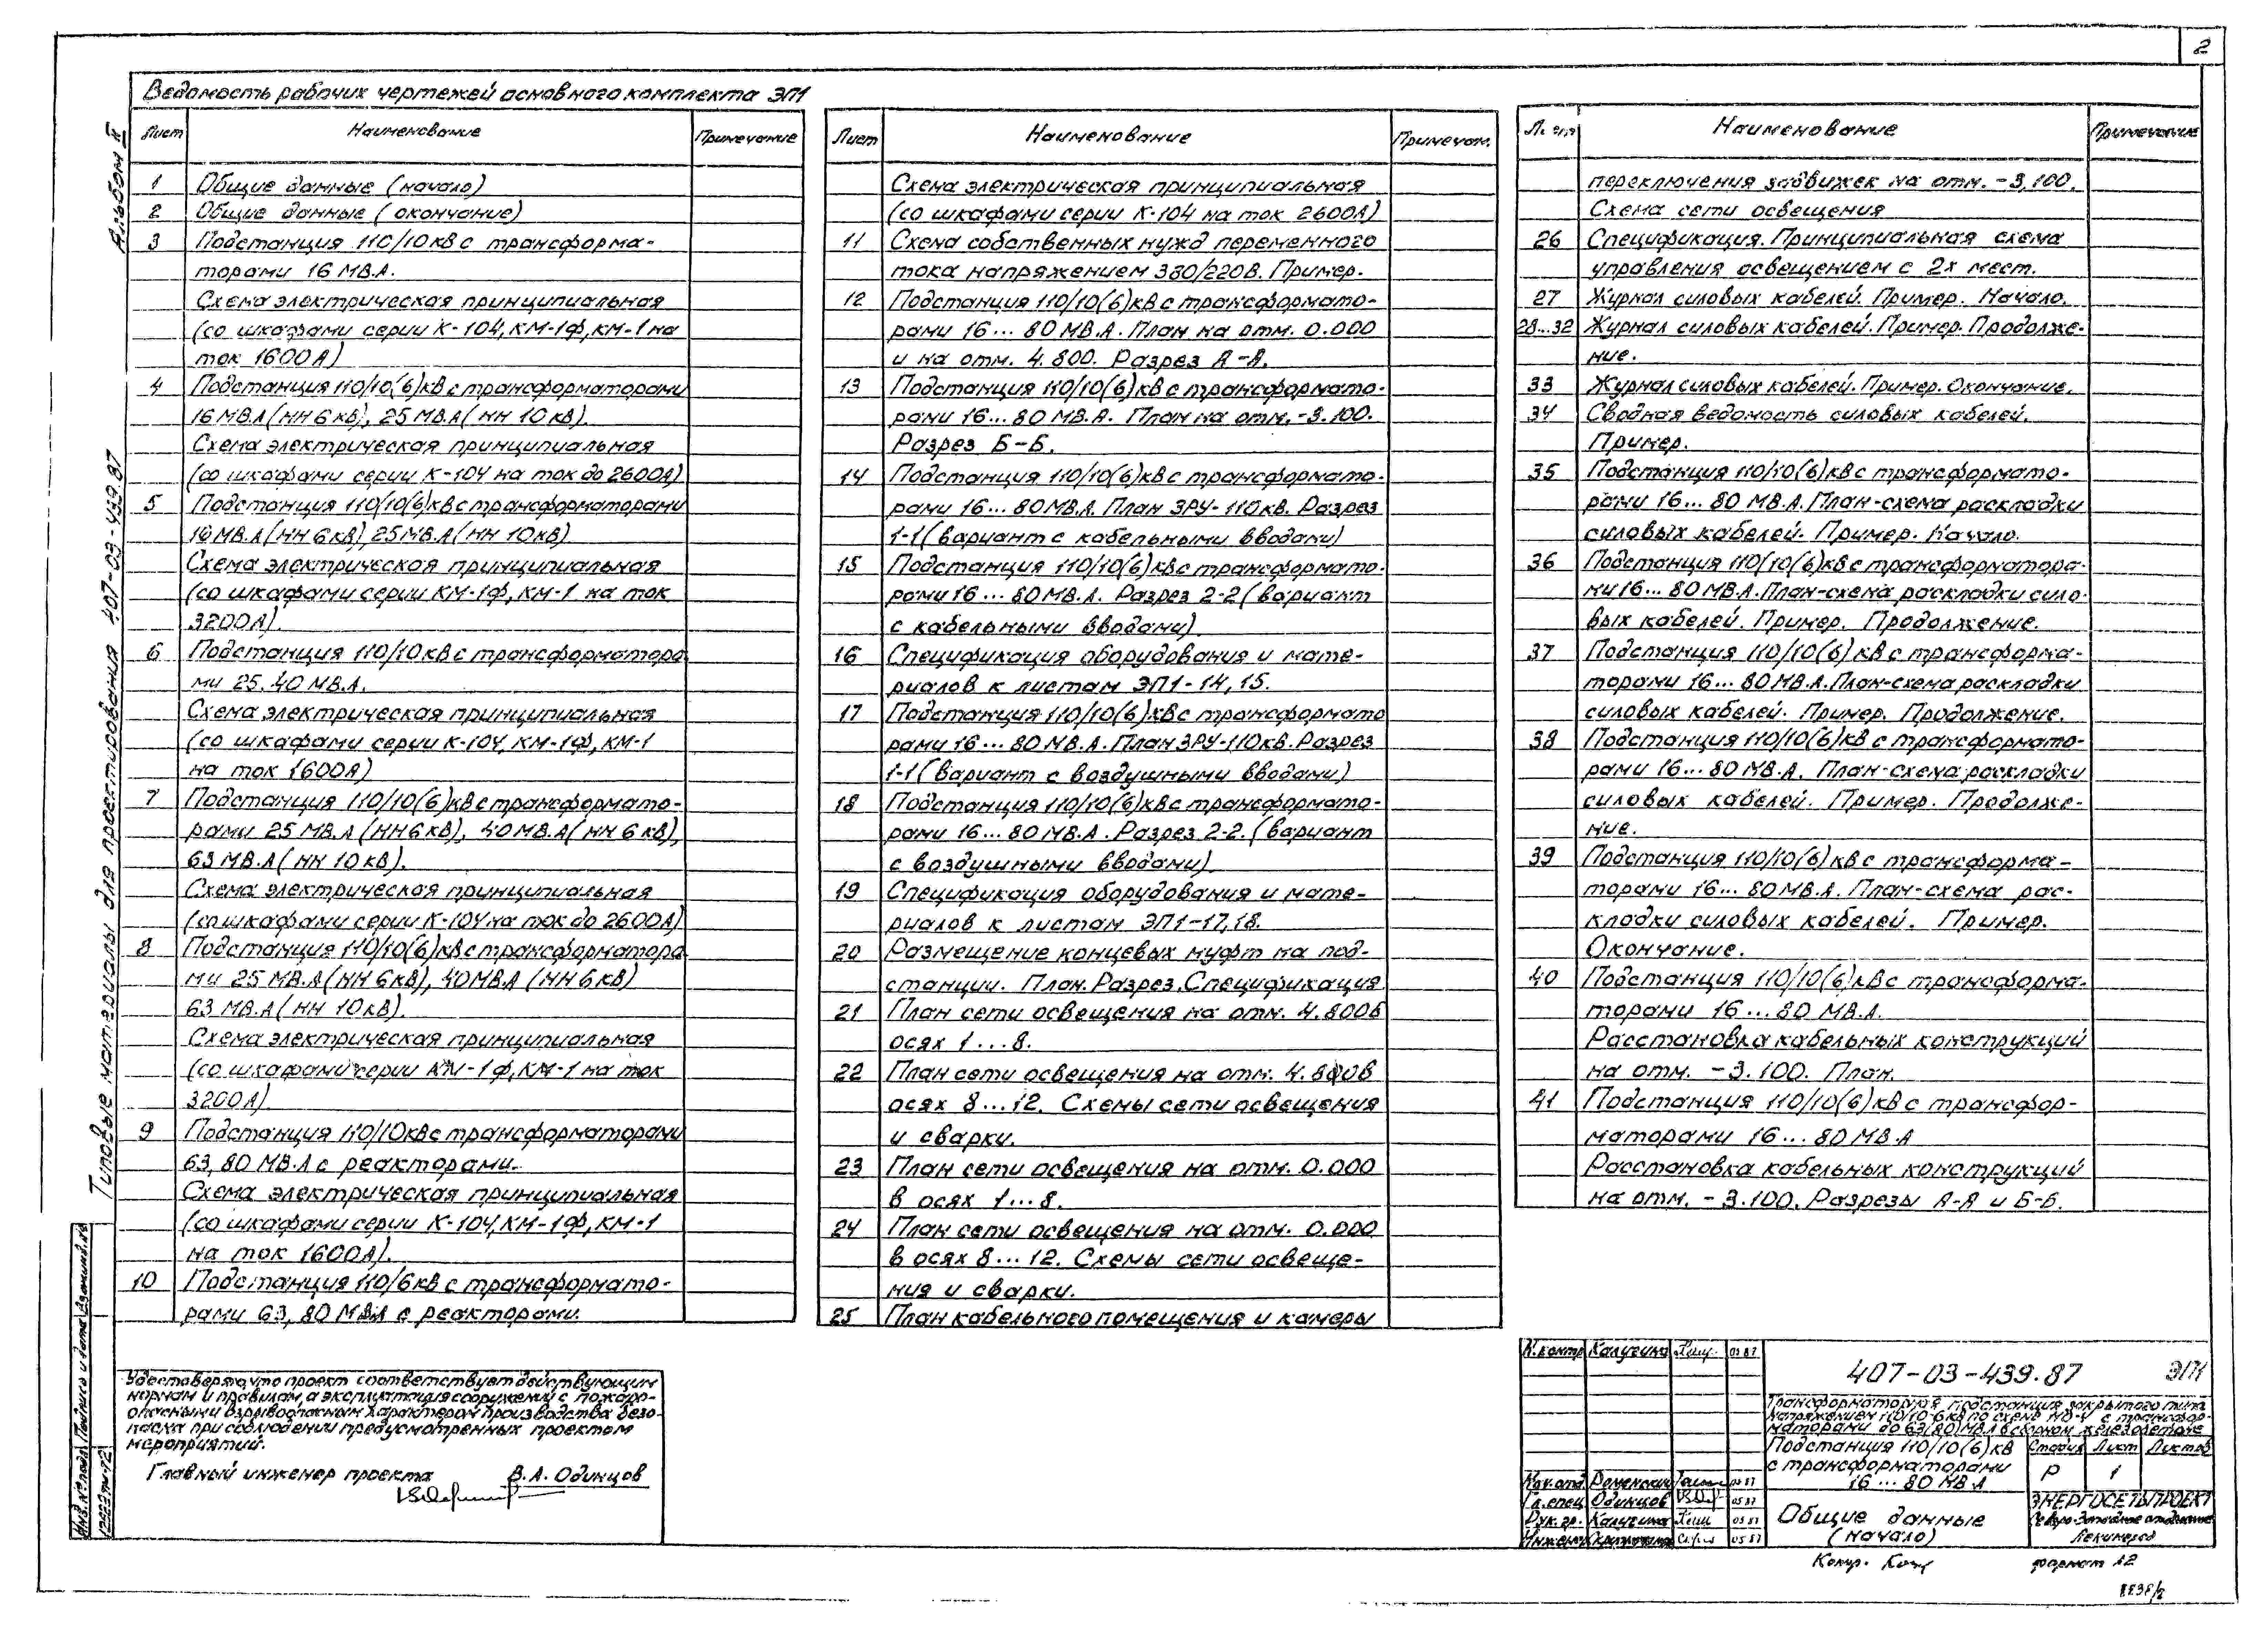 2
Ведомость рабочих чертежей основного комплекта ЭП1
Альбом II
Типовые материалы для проектирования 407-03-439.87
Лист Наименование Примечание
1 Общие данные (начало)
2 Общие данные (окончание)
3 Подстанция 110/10кВ с трансформа-
торами 16 МВ.А.
Схема электрическая принципиальная
(со шкафами серии К-104, КМ-1Ф, КМ-1 на
ток 1600А)
4 Подстанция 110/10(6)кВ с трансформаторами
16МВ.А(НН 6кВ), 25МВ.А(НН 10кВ).
Схема электрическая принципиальная
(со шкафами серии К-104 на ток до 2600А)
5 Подстанция 110/10(6)кВ с трансформаторами
16МВ.А(НН 6кВ), 25МВ.А(НН 10кВ)
Схема электрическая принципиальная
(со шкафами серии КМ-1Ф, КМ-1 на ток
3200А).
6 Подстанция 110/10кВ с трансформатора
ми 25.40 МВ.А.
Схема электрическая принципиальная
(со шкафами серии К-104, КМ-1Ф, КМ-1
на ток 1600А)
7 Подстанция 110/10(6)кВ с трансформато-
рами 25 МВ.А (НН 6кВ), 40МВ.А(НН 6кВ),
63МВ.А(НН 10кВ).
Схема электрическая принципиальная
(со шкафами серии К-104 на ток до 2600А)
8 Подстанция 110/10(6)кВ с трансформатора
ми 25 МВ.А(НН 6кВ), 40МВ.А (НН 6кВ)
63 МВ.А(НН 10кВ).
Схема электрическая принципиальная
(со шкафами серии КМ-1Ф, КМ-1 на ток
3200А)
9 Подстанция 110/10кВ с трансформаторами
63, 80 МВ.А с реакторами.
Схема электрическая принципиальная
(со шкафами серии К-104, КМ-1Ф, КМ-1
на ток 1600А).
10 Подстанция 110/6кВ с трансформато-
рами 63, 80 МВ.А с реакторами.
Лист Наименование Примечан.
Схема электрическая принципиальная
(со шкафами серии К-104 на ток 2600А)
11 Схема собственных нужд переменного
тока напряжением 380/220В. Пример.
12 Подстанция 110/10(6)кВ с трансформато-
рами 16...80 МВ.А. План на отм. 0.000
и на отм. 4.800. Разрез А-А.
13 Подстанция 110/10(6)кВ с трансформато-
рами 16...80 МВ.А. План на отм. -3.100.
Разрез Б-Б.
14 Подстанция 110/10(6)кВ с трансформато-
рами 16...80МВ.А. План ЗРУ-110кВ. Разрез
1-1(вариант с кабельными вводами)
15 Подстанция 110/10(6)кВ с трансформато-
рами 16...80МВ.А. Разрез 2-2(вариант
с кабельными вводами)
16 Спецификация оборудования и мате-
риалов к листам ЭП1-14,15.
17 Подстанция 110/10(6)кВ с трансформато
рами 16...80 МВ.А. План ЗРУ-110кВ. Разрез
1-1(вариант с воздушными вводами)
18 Подстанция 110/10(6)кВ с трансформато-
рами 16...80 МВ.А. Разрез 2-2. (вариант
с воздушными вводами)
19 Спецификация оборудования и мате-
риалов к листам ЭП1-17,18.
20 Размещение концевых муфт на под-
станции. План. Разрез. Спецификация
21 План сети освещения на отм. 4.800в
осях 1...8.
22 План сети освещения на отм. 4.800в
осях 8...12. Схемы сети освещения
и сварки.
23 План сети освещения на отм. 0.000
в осях 1...8.
24 План сети освещения на отм. 0.000
в осях 8...12. Схемы сети освеще-
ния и сварки.
25 План кабельного помещения и камеры
Лист Наименование Примечание
переключения задвижек на отм. -3.100.
Схема сети освещения
26 Спецификация. Принципиальная схема
управления освещением с 2х мест.
27 Журнал силовых кабелей. Пример. Начало.
28...32 Журнал силовых кабелей. Пример. Продолже-
ние.
33 Журнал силовых кабелей. Пример. Окончание.
34 Сводная ведомость силовых кабелей.
Пример.
35 Подстанция 110/10(6)кВ с трансформато-
рами 16...80 МВ.А. План-схема раскладки
силовых кабелей. Пример. Начало.
36 Подстанция 110/10(6)кВ с трансформатора-
ми 16...80 МВ.А. План-схема раскладки сило-
вых кабелей. Пример. Продолжение.
37 Подстанция 110/10(6)кВ с трансформа-
торами 16...80МВ.А. План-схема раскладки
силовых кабелей. Пример. Продолжение.
38 Подстанция 110/10(6)кВ с трансформато-
рами 16...80 МВ.А. План-схема раскладки
силовых кабелей. Пример. Продолже-
ние.
39 Подстанция 110/10(6)кВ с трансформа-
торами 16...80МВ.А. План-схема рас-
кладки силовых кабелей. Пример.
Окончание.
40 Подстанция 110/10(6)кВ с трансформа-
торами 16...80 МВ.А.
Расстановка кабельных конструкций
на отм. -3.100. План.
41 Подстанция 110/10(6)кВ с трансфор-
маторами 16...80МВ.А
Расстановка кабельных конструкций
на отм. -3.100. Разрезы А-А и Б-Б.
Удостоверяю, что проект соответствует действующим
нормам и правилам, а эксплуатация сооружений с пожаро-
опасным и взрывоопасным характером производства безо-
пасна при соблюдении предусмотренных проектом
мероприятий.
Главный инженер проекта В.А. Одинцов
Инв.№ подл. Подпись и дата Взам.инв.№
Н.контр Калугина 0587
407-03-439.87 ЭП1
Трансформаторная подстанция закрытого типа
напряжением 110/10-6кВ по схеме 110-4 с трансфор-
маторами до 63(80)МВ.А в сборном железобетоне
Подстанция 110/10(6)кВ
с трансформаторами
16...80 МВ.А
Стадия Лист Листов
Р 1
Нач.отд. Роменский 0587
Гл.спец. Одинцов 0587
Рук.гр. Калугина 0587
Инженер 0587
Общие данные
(начало)
ЭНЕРГОСЕТЬПРОЕКТ
Северо-Западное отделение
Ленинград
Копир. формат 12